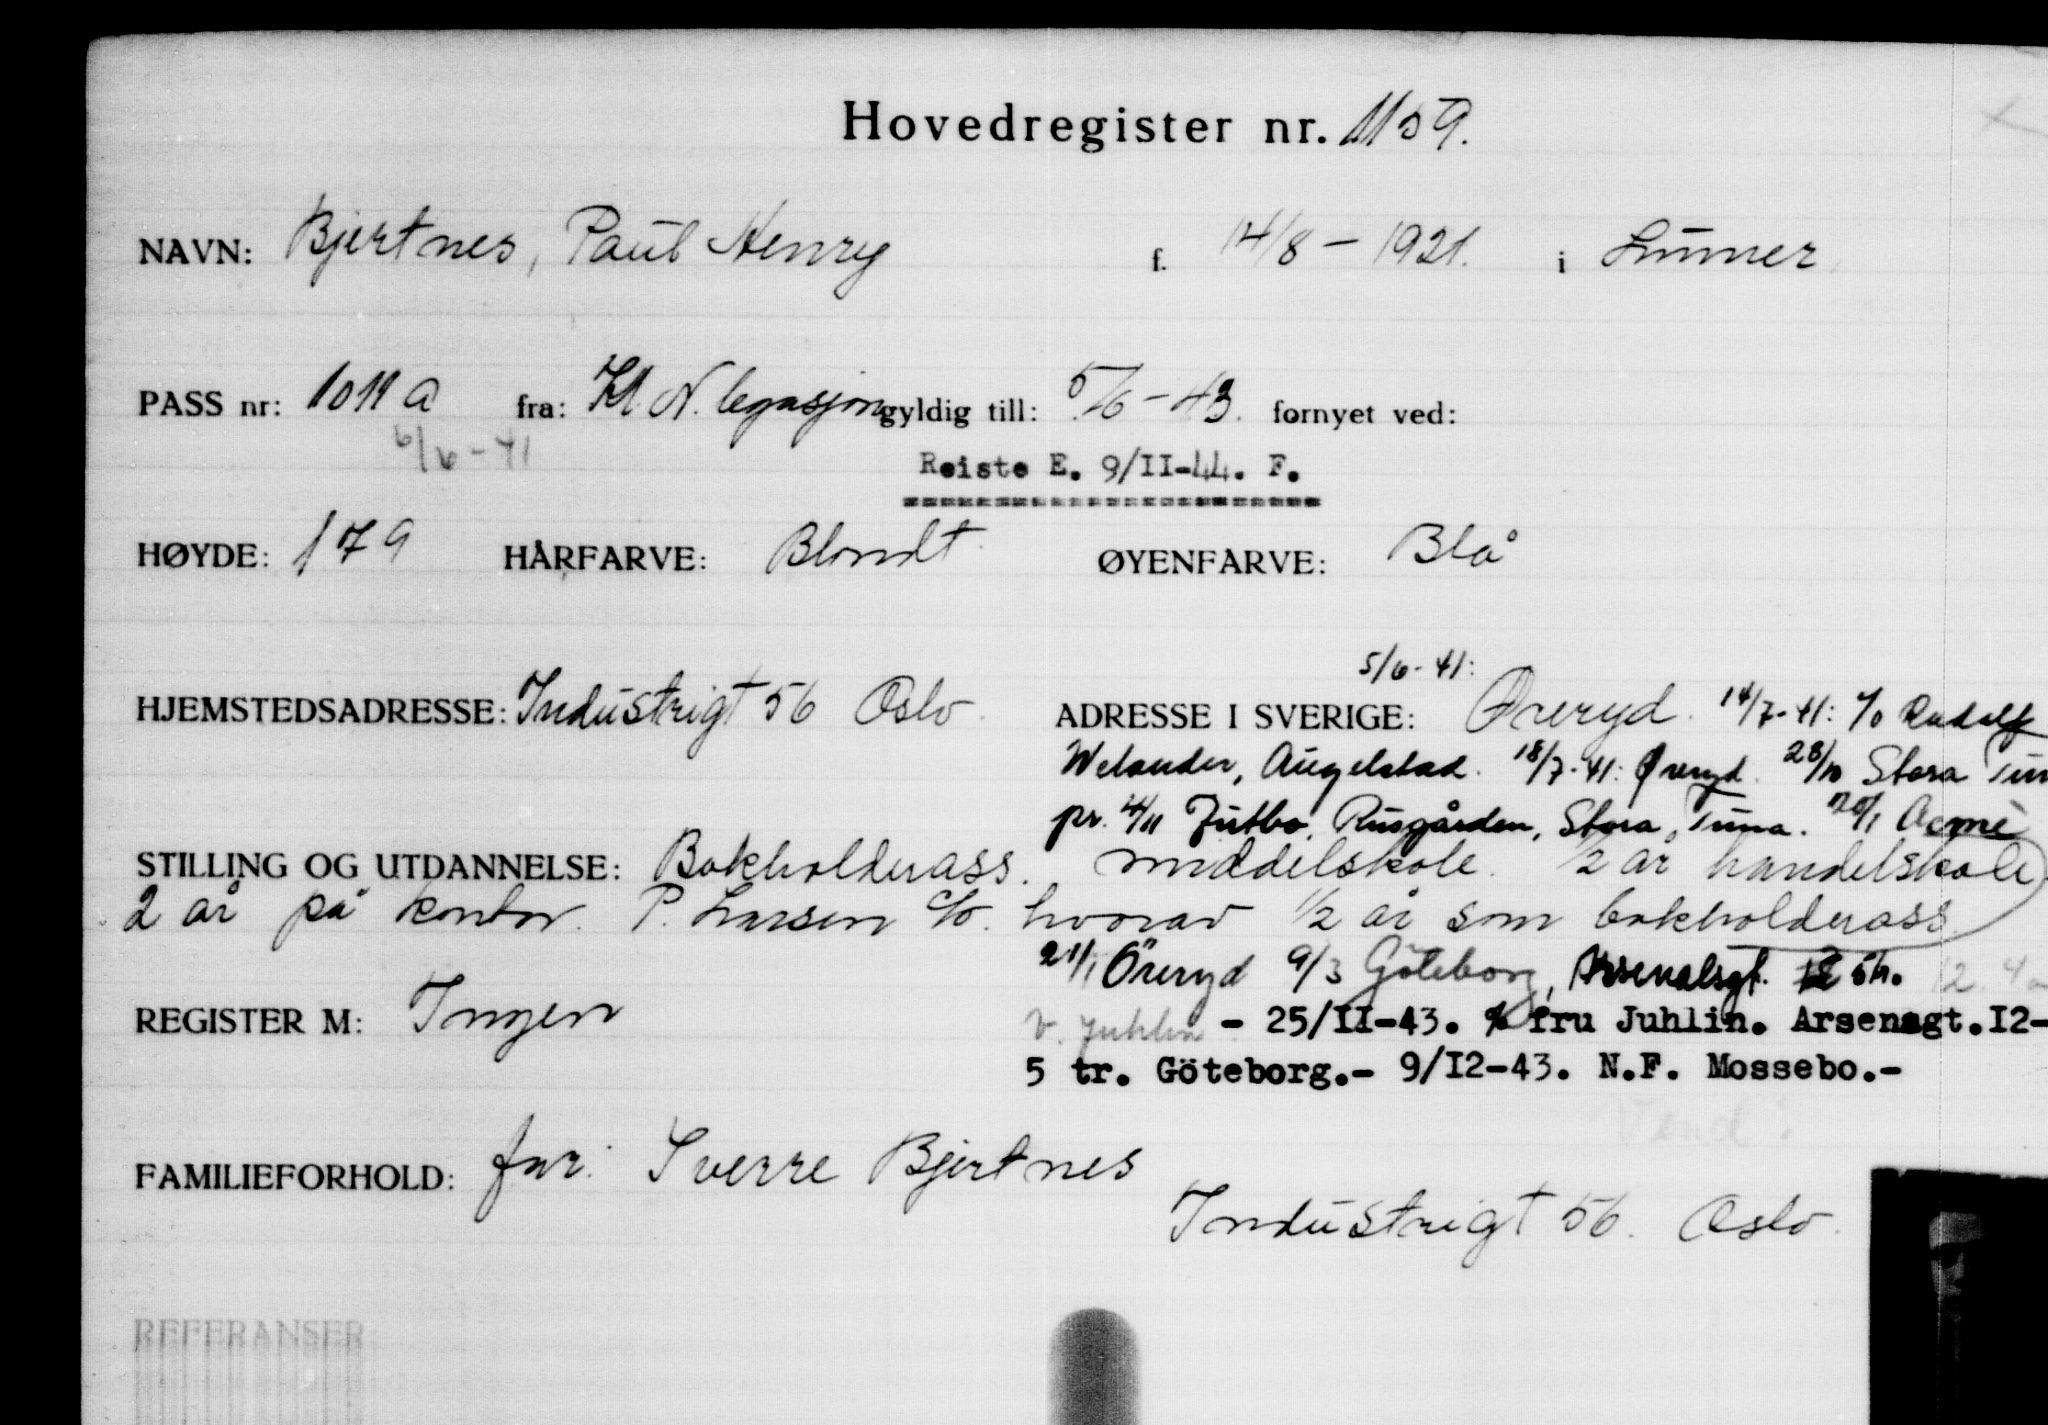 Hovedregister nr. 1159.
NAVN: Bjertnes, Paul Henry f. 14/8 - 1921. i Lunner
PASS nr: 1011 a fra: Kl. N. legasjon gyldig till: 5/6 - 43. fornyet ved:
6/6 - 41
Reiste E. 9/II-44. F.
HØYDE: 179 HÅRFARVE: Blondt ØYENFARVE: Blå
5/6 - 41:
HJEMSTEDSADRESSE: Industrigt 56 Oslo. ADRESSE I SVERIGE: Øreryd. 14/7-41: c/o Rudolf
Welander, Augelstad. 18/7-41: Øreryd. 28/10 Stora Tun
pr. 4/11 Jutbo, Rusgården, Stora Tuna. 20/1 Acme
STILLING OG UTDANNELSE: Bokholderass. middelskole. 1/2 år handelskole
2 år på kontor. P. Larsen c/o. hvorav 1/2 år som bokholderass.
21/1 Öreryd 9/3 Göteborg, Arsenalsgt. 12 5tr. 12. 4
REGISTER M: Ingen v. Juhlin - 25/II-43. % fru Juhlin. Arsenagt.I2-
5 tr. Göteborg.- 9/I2-43. N.F. Mossebo.-
Vend!
FAMILIEFORHOLD: far: Sverre Bjertnes
Industrigt 56. Oslo.
REFERANSER